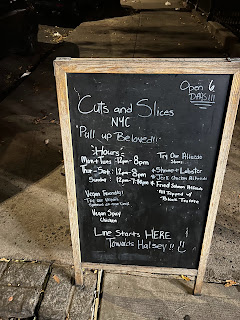 Open 6
DAYS!!!
Cuts and Slices
NYC
"Pull up Beloved!!"
Hours
Mon + Tues : 12pm - 8pm
Thur - Sat : 12pm - 8pm
Sunday : 12pm -
Vegan Friendly!
Try Our Vegan
Vegan Spicy
Chicken
Try Our Alfredo
Shrimp + Lobster
Jerk Chicken Alfredo
Fried Salmon Alfredo
All Topped w/
Black Truffle
Line Starts HERE
Towards Halsey!!